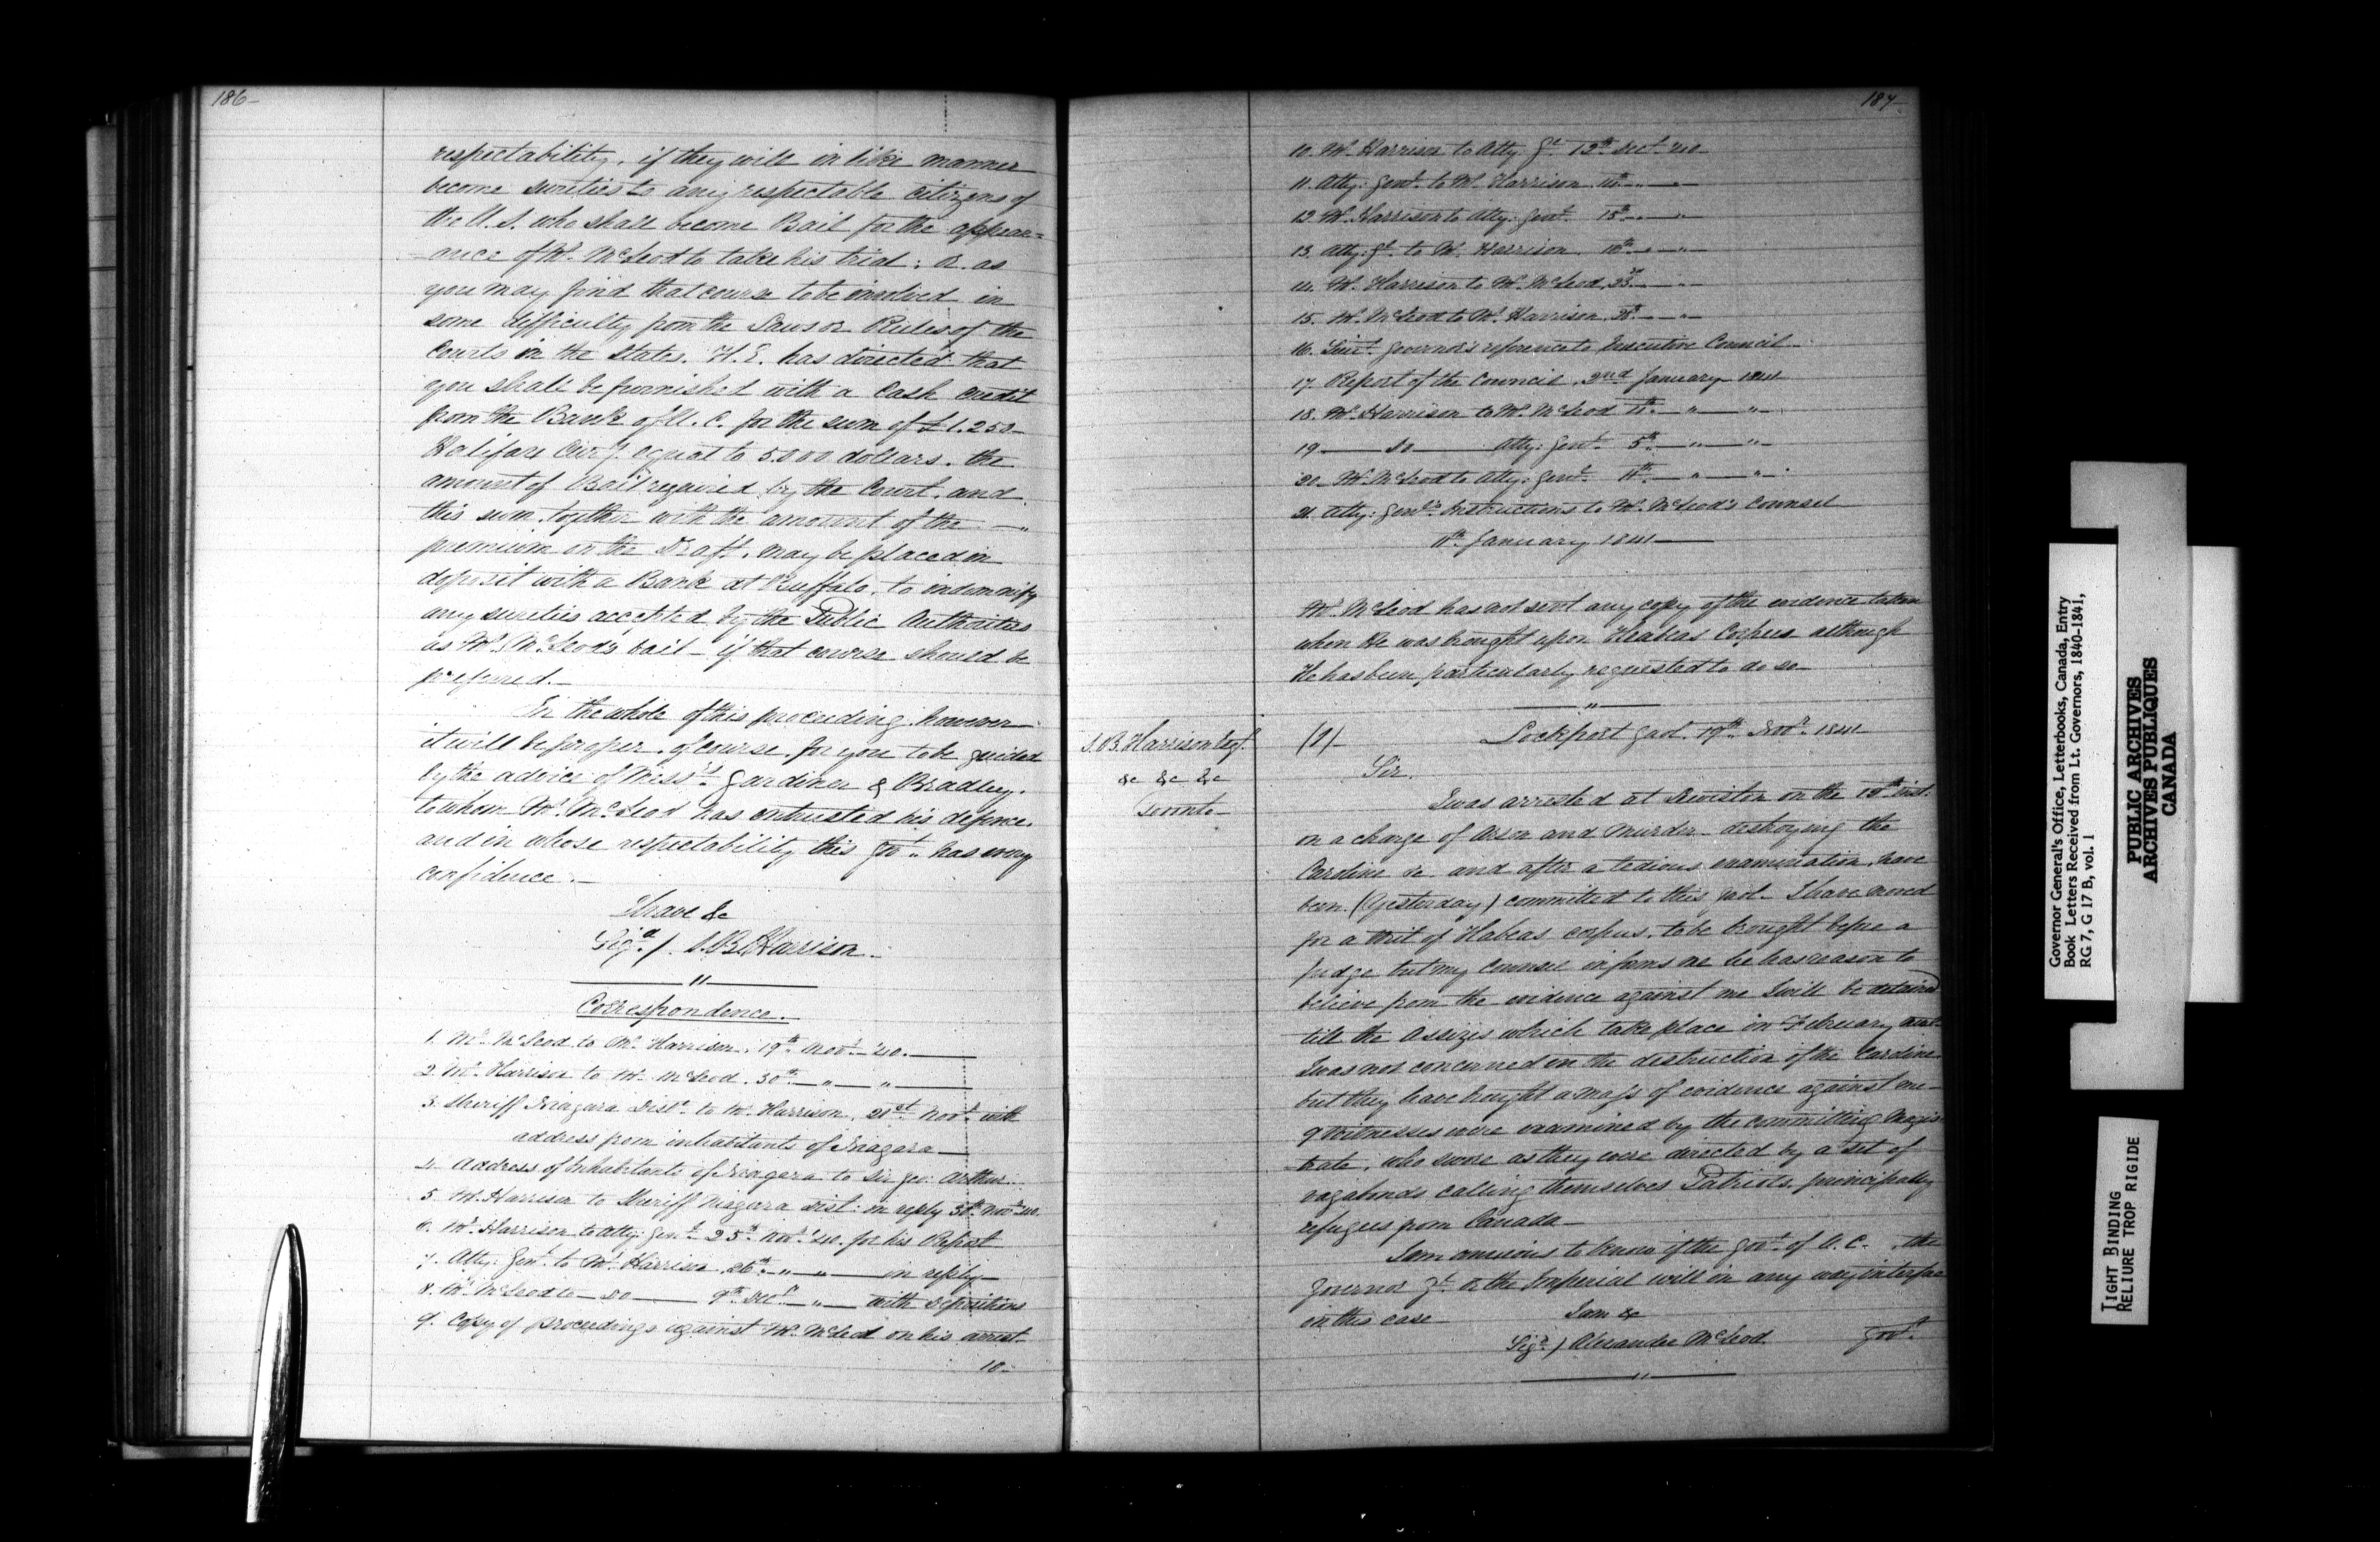 186-
respectability, if they will in like manner
become sureties to any respectable citizens of
the U.S. who shall become Bail for the appear=
ance of Mr. McLeod to take his trial: or as
you may find that course to be involved in
some difficulty from the Laws or Rules of the
Courts in the States, H.E. has directed that
you shall be furnished with a Cash credit
from the Bank of U.C. for the sum of £1.250-
Halifax Curcy. equal to 5.000 dollars. the
amount of Bail required by the Court, and
this sum, together with the amount of the — "
premium on the Draft, may be placed in
deposit with a Bank at Buffalo, to indemnify
any sureties accepted by the Public Authorities
as Mr. McLeod's bail - if that course should be
preferred.-
In the whole of this proceeding however
it will be proper, of course, for you to be guided
by the advice of Messrs. Gardiner & Bradley.
to whom Mr. McLeod has entrusted his defence.
and in whose respectability this Govt. has every
confidence.-
I have &c
Sigd./ S.B. Harrison.-
— " —
Correspondence.-
1. Mr. McLeod to Mr. Harrison. 19th. Novr. '40.—
2. Mr. Harrison to Mr. McLeod. 30th — " — " —
3. Sheriff Niagara Distt. to Mr. Harrison, 21st Novr. with
address from inhabitants of Niagara —
4. Address of Inhabitants of Niagara to Sir Geo: Arthur.-
5. Mr. Harrison to Sheriff Niagara Dist: in reply 30th. Novr. '40.
6. Mr. Harrison to Atty: Genl. 25th. Novr. '40. for his Report
7. Atty: Genl. to Mr. Harrison 26th. — " — " — in reply-
8. Mr. McLeod to — Do — 9th. Decr. — " — with Depositions
9. Copy of proceedings against Mr. McLeod on his arrest-
10-
187-
10. Mr. Harrison to Atty: Gl. 12th. Decr. '40-
11. Atty: Genl. to Mr. Harrison. 14th. — " —
12. Mr. Harrison to Atty: Genl. 15th. — " —
13. Atty: Gl. to Mr. Harrison. 16th. — " —
14. Mr. Harrison to Mr. McLeod, 23rd. — " —
15. Mr. McLeod to Mr. Harrison. — " —
16. Lieut. Governor's reference to Executive Council-
17. Report of the Council, 2nd January 1841
18. Mr. Harrison to Mr. McLeod 4th. — " — " —
19 — Do — Atty: Genl. 5th. — " — " —
20. Mr. McLeod to Atty: Genl. — " — " —
21. Atty: Genl's. Instructions to Mr. McLeod's Counsel
11th. January 1841 —
Mr. McLeod has not sent any copy of the evidence taken
when He was brought up on Heabeas Corpus although
He has been particularly requested to do so-
— " —
S.B. Harrison Esqr.
&c &c &c
Toronto-
(1)-
Lockport Gaol. 19th. Novr. 1841
Sir.
I was arrested at Lewiston on the inst.
on a charge of Arson and Murder - destroying the
Caroline &c. and after a tedious examination, have
been (Yesterday) committed to this Gaol. I have moved
for a Writ of Habeas corpus, to be brought before a
Judge but my Counsel informs me he has reason to
believe from the evidence against me I will be detained
till the Assizes which take place in February next-
I was not concerned in the destruction of the Caroline
but they have bought a mass of evidence against me-
9 Witnesses were examined by the committing Magis-
trate, who swore as they were directed by a set of
vagabonds calling themselves Patriots, principally
refugees from Canada-
I am anxious to know if the Govt. of U.C. , the
Governor Gl. or the Imperial will in any way interfere
in this case-
I am &c
Sigd./ Alexander McLeod.
Govt.
— " —
Governor General's Office, Letterbooks, Canada, Entry
Book Letters Received from Lt. Governors, 1840-1841,
RG 7, G 17 B, vol. 1
PUBLIC ARCHIVES
ARCHIVES PUBLIQUES
CANADA
TIGHT BINDING
RELIURE TROP RIGIDE